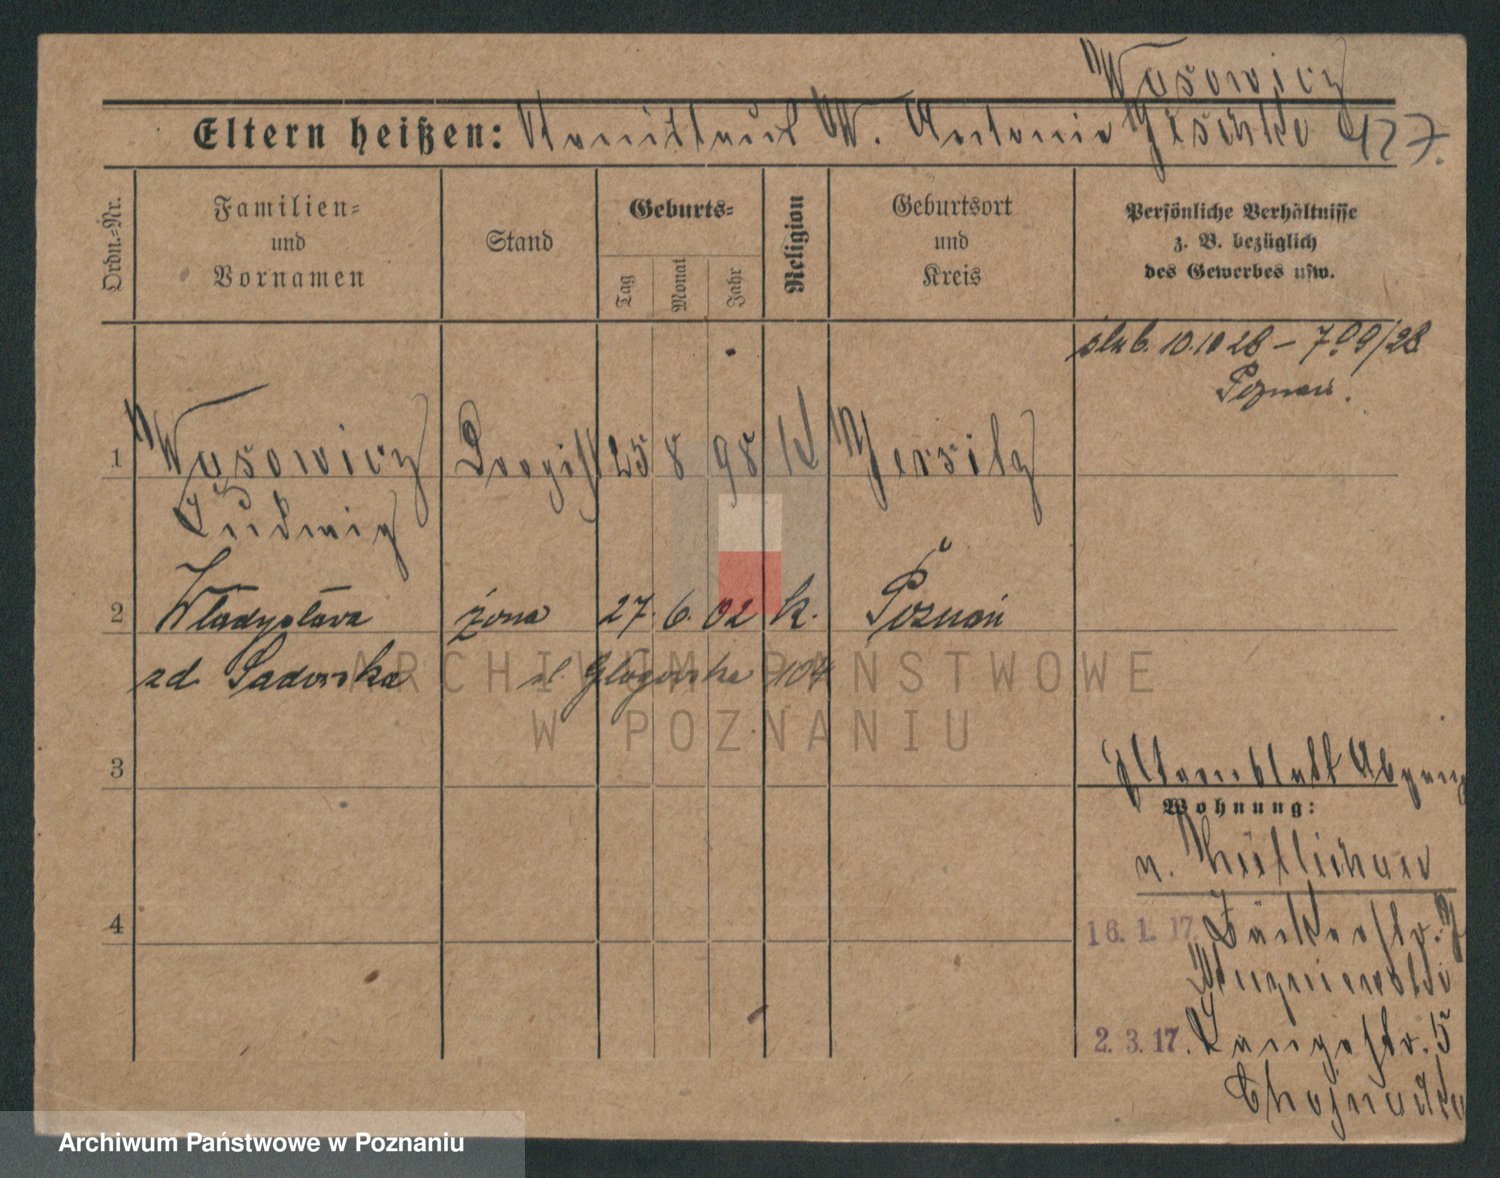 Wąsowicz
Eltern heißen: Stanislaus W. Antonie 427.
Ordn.=Nr.
Familien=
und
Vornamen
Stand
Geburts=
Tag
Monat
Jahr
Religion
Geburtsort
und
Kreis
Persönliche Verhältnisse
z. B. bezüglich
des Gewerbes usw.
ślub. 10.10 28 – 799/28
Poznań.
1 Wąsowicz Drogist 25 8 98 K Jersitz
Ludwig
2 Władysława żona 27. 6. 02 k. Poznań
zd Sadowska ul. Głogowska 104
3
Stammblatt Abgang
Wohnung:
n. Züllichau
4
16. 1. 17. Bäckerstr.
2. 3. 17. Langestr. 5
Chojnacka
ARCHIWUM PAŃSTWOWE
W POZNANIU
Archiwum Państwowe w Poznaniu